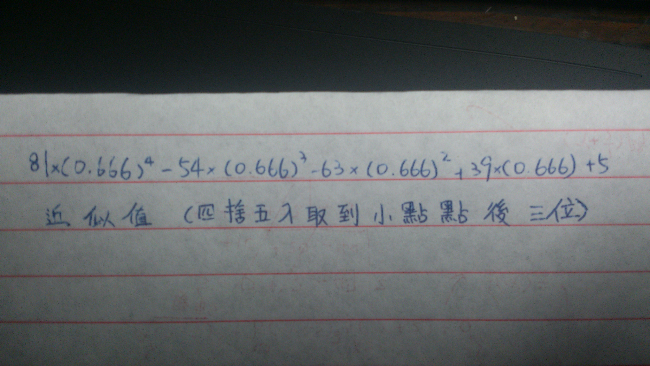 81×(0.666)⁴ - 54×(0.666)³ - 63×(0.666)² + 39×(0.666) + 5
近似值 (四捨五入取到小點點後三位)